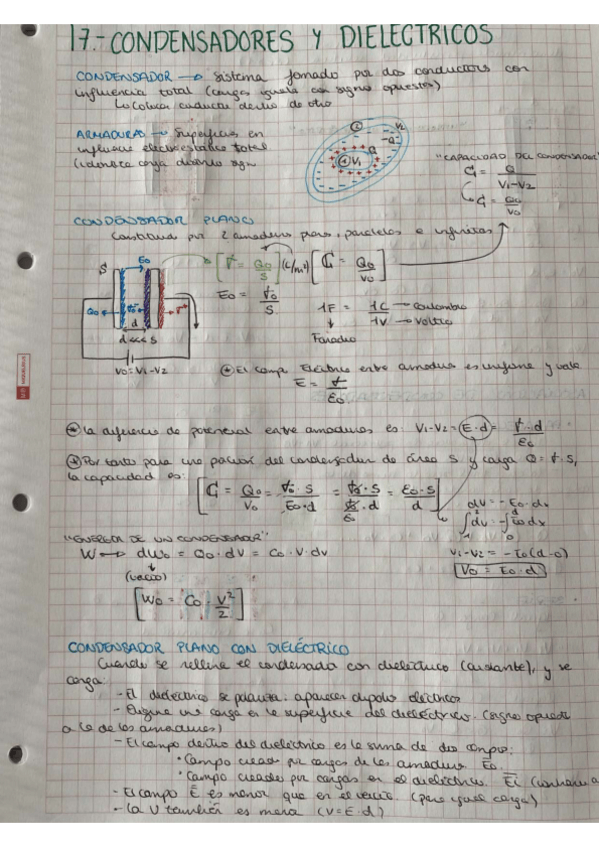 17.- CONDENSADORES Y DIELECTRICOS
CONDENSADOR → Sistema formado por dos conductores con
influencia total (cargas iguales con signos opuestos)
↳ Colocar conductor dentro de otro
ARMADURAS → Superficies en
influencia electrostática total
(idéntica carga distinto signo)
"CAPACIDAD DEL CONDENSADOR"
C = Q / V1-V2
C = Q0 / V0
CONDENSADOR PLANO
Constituido por 2 armaduras planas, paralelas e infinitas
[σ = Q0 / S] (C/m²) [C = Q0 / V0]
S
E0
Q0
d
d <<< S
V0 = V1-V2
E0 = σ0 / S
1F = 1C → Coulombio / 1V → Voltio
Faradio
El campo Eléctrico entre armaduras es uniforme y vale
E = σ / E0
La diferencia de potencial entre armaduras es: V1-V2 = E·d = σ·d / E0
Por tanto para una porción del condensador de área S y carga Q = σ·S,
la capacidad es:
[C = Q0 / V0 = σ0·S / E0·d = σ0·S / σ0/E0·d = E0·S / d]
dV = -E0·dx
∫dV = -∫E0dx
V1-V2 = -E0(d-0)
V0 = E0·d
"ENERGÍA DE UN CONDENSADOR"
W → dW0 = Q0·dV = C0·V·dV
(vacío)
[W0 = C0·V² / 2]
CONDENSADOR PLANO CON DIELÉCTRICO
Cuando se rellena el condensador con dieléctrico (aislante), y se
carga:
- El dieléctrico se polariza: aparecen dipolos eléctricos
- una carga en la superficie del dieléctrico. (signo opuesto
a la de las armaduras)
- El campo dentro del dieléctrico es la suma de dos campos:
• Campo creado por cargas de las armaduras E0.
• Campo creado por cargas en el dieléctrico. Ei
- El campo E es menor que en el vacío. (para igual carga)
- La V también es menor (V=E·d)